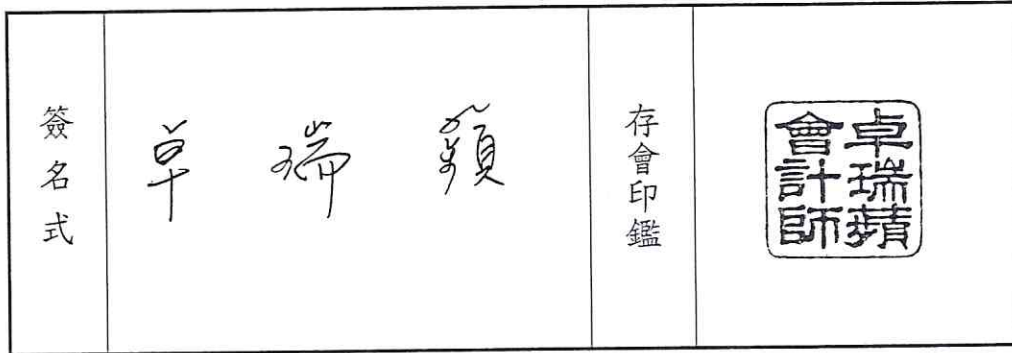 簽名式
卓瑞蘋
存會印鑑
卓瑞蘋
會計師